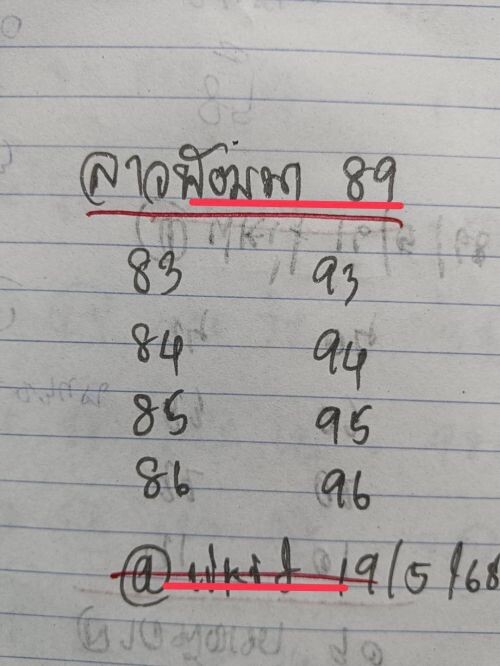 ลาวพัฒนา 89
83 93
84 94
85 95
86 96
19/5/68